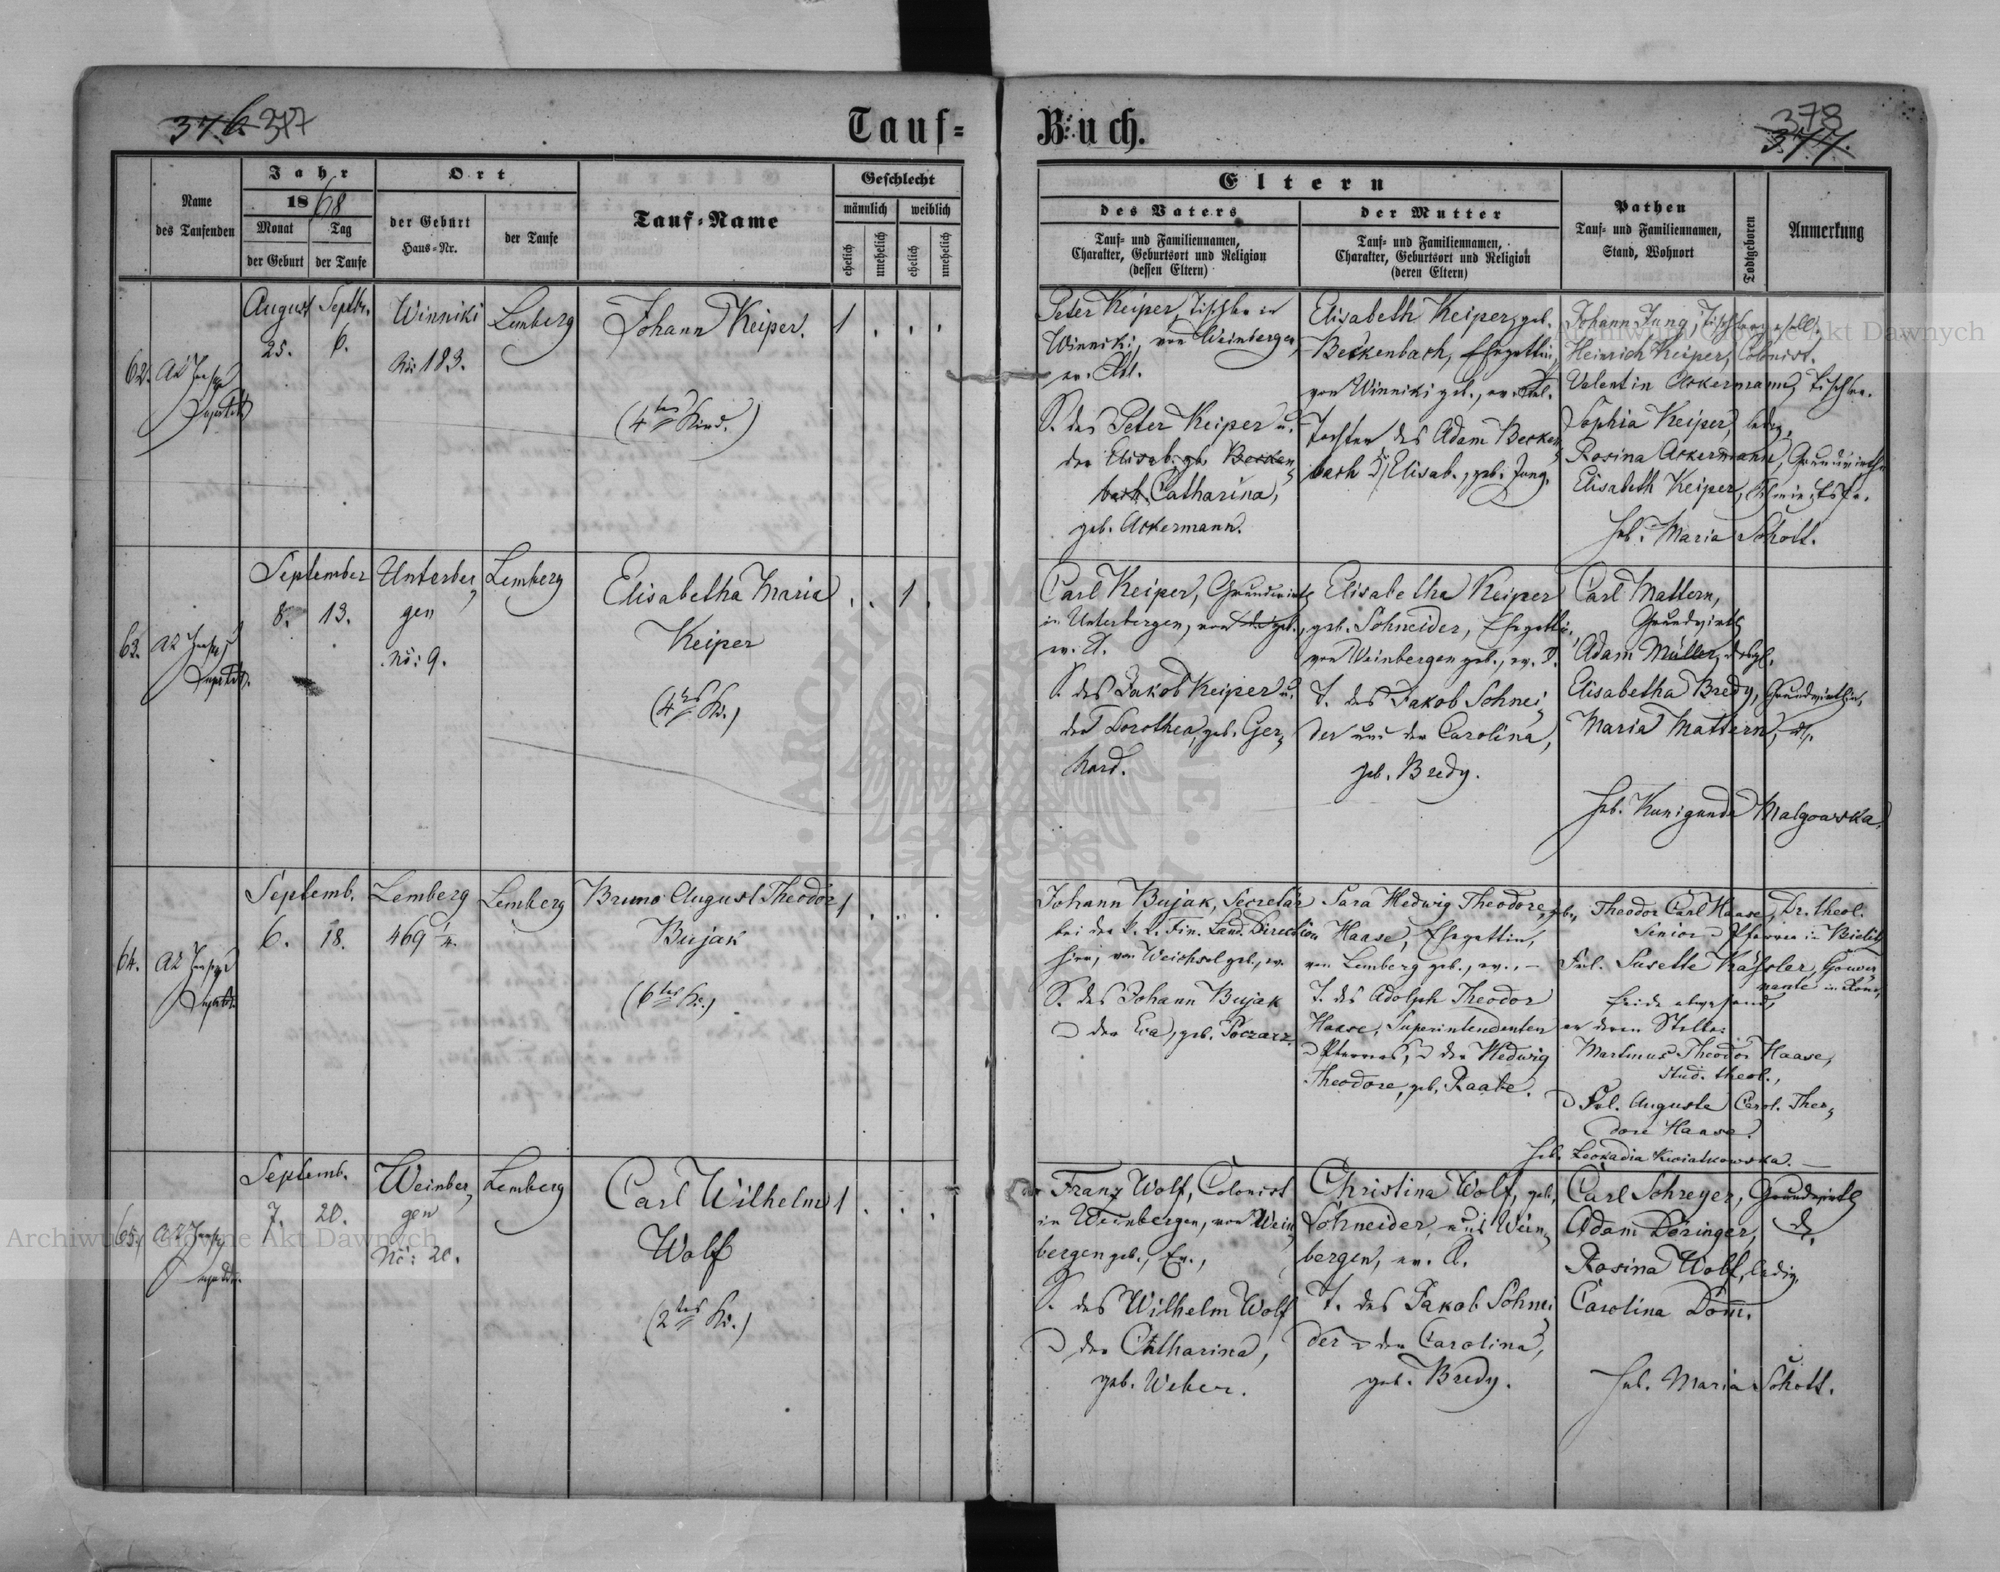 376. 377
Tauf-
Buch.
378
377.
Name
des Taufenden
Jahr
1868
Monat
der Geburt
Tag
der Taufe
Ort
der Geburt
Haus-Nr.
der Taufe
Tauf-Name
Geschlecht
männlich
weiblich
ehelich
unehelich
ehelich
unehelich
Eltern
des Vaters
Tauf- und Familiennamen,
Charakter, Geburtsort und Religion
(dessen Eltern)
der Mutter
Tauf- und Familiennamen,
Charakter, Geburtsort und Religion
(deren Eltern)
Pathen
Tauf- und Familiennamen,
Stand, Wohnort
Todtgeboren
Anmerkung
62.
August
25.
Septbr.
6.
Winniki
No: 183.
Lemberg
Johann Keiper.
(4tes Kind.)
1 . . .
Peter Keiper, Tischler in
Winniki, von Weinbergen,
ev.
S. des Peter Keiper u.
der Elisab. geb. Becken,
bach Catharina,
geb. Ackermann.
Elisabeth Keiper, geb.
Beckenbach, Ehegattin,
von Winniki geb., ev.
Tochter des Adam Becken,
bach & Elisab., geb. Jung.
Johann Jung, Tischlergesell.
Heinrich Keiper, Colonist.
Valentin Ackermann, Tischler.
Sophia Keiper, ledig,
Rosina Ackermann, Grundwirthin
Elisabeth Keiper,
Heb. Maria Schott.
63.
September
8. 13.
Unterber,
gen
No: 9.
Lemberg
Elisabetha Maria
Keiper
(4tes Ki.)
. . 1 .
Carl Keiper, Grundwirth
in Unterbergen, von geb.,
ev. A.
S. des Jakob Keiper u.
der Dorothea, geb. Ger,
hard.
Elisabetha Keiper
geb. Schneider, Ehegattin,
von Weinbergen geb., ev. A.
T. des Jakob Schnei,
der und der Carolina,
geb. Bredy.
Carl Mattern,
Grundwirth
Adam Müller, desgl.
Elisabetha Bredy, Grundwirthin,
Maria Mattern,
Heb. Kunigunde Malgowska.
64.
Septemb.
6. 18.
Lemberg
469 2/4.
Lemberg
Bruno August Theodor
Bujak
(6tes Ki.)
1 . . .
Johann Bujak, Secretär
bei der k. k. Fin. Land. Direction
hier, von Weichsel geb., ev.
S. des Johann Bujak
& der Eva, geb. Poczarz.
Sara Hedwig Theodore, geb.
Haase, Ehegattin,
von Lemberg geb., ev., –
T. des Adolph Theodor
Haase, Superintendenten
& Pfarrers, & der Hedwig
Theodore, geb. Raabe.
Theodor Carl Haase, Dr. theol.
Senior & Pfarrer in Bielitz
Frl. Susette Kässler, Gouver,
nante in
beide abwesend,
an deren Stelle:
Martinus Theodor Haase,
stud. theol.,
& Frl. Auguste Carol. Theo,
dore Haase.
Heb. Leokadia Kwiatkowska. –
65.
Septemb.
7. 20.
Weinber,
gen
No: 20.
Lemberg
Carl Wilhelm
Wolf
(2tes Ki.)
1 . . .
Franz Wolf, Colonist
in Weinbergen, von Wein,
bergen geb., Ev.,
S. des Wilhelm Wolf
& der Catharina,
geb. Weber.
Christina Wolf, geb.
Schneider, aus Wein,
bergen, ev. A.
T. des Jakob Schnei,
der & der Carolina,
geb. Bredy.
Carl Schreyer, Grundwirth
Adam Döringer,
Rosina Wolf, ledig,
Carolina Dom.
Heb. Maria Schott.
Archiwum Główne Akt Dawnych
Archiwum Główne Akt Dawnych